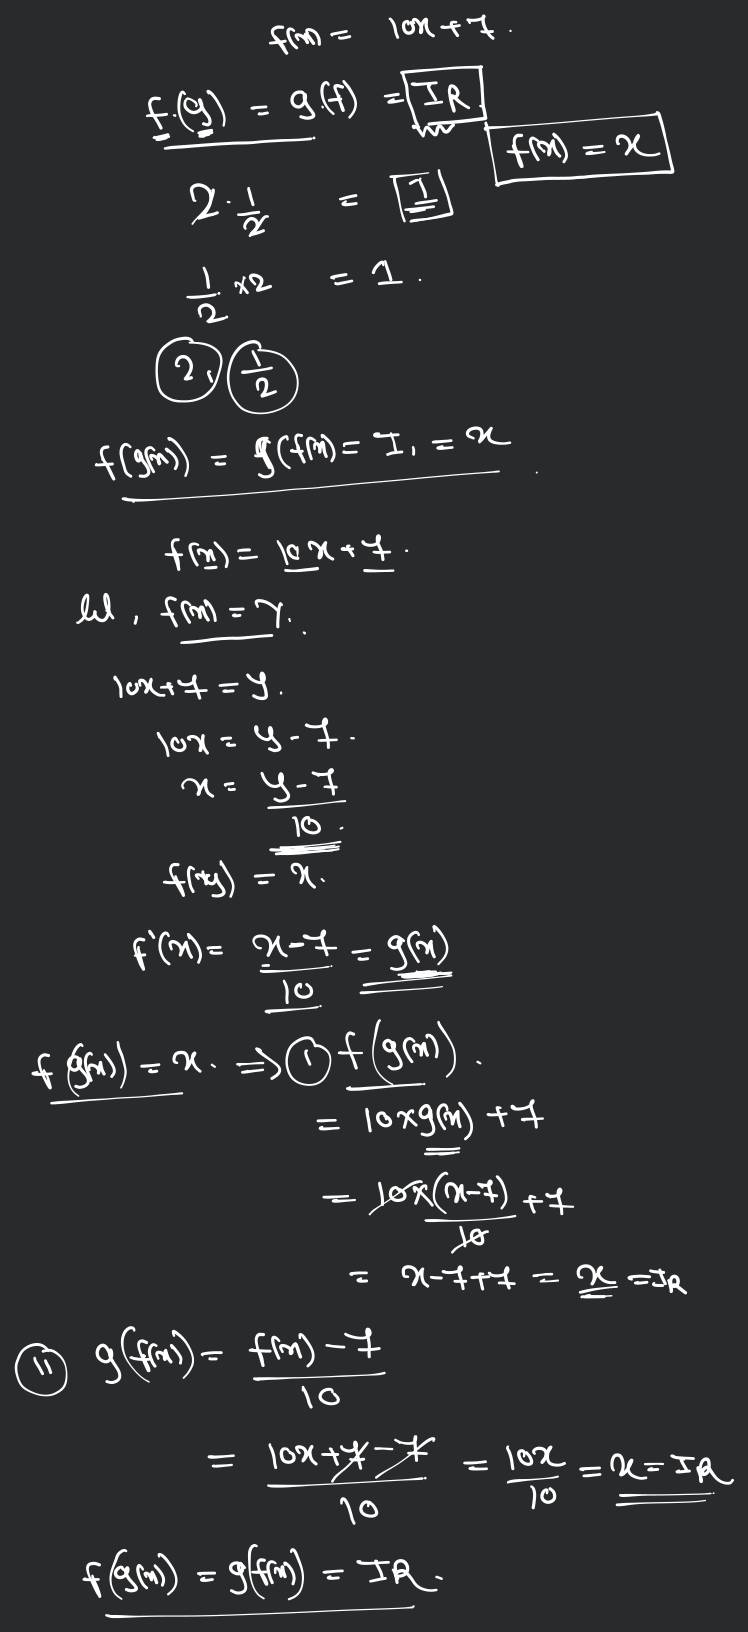 f(x) = 10x + 7.
f.(g) = g.(f) = IR
f(x) = x
2·1/2 = 1
1/2 ×2 = 1.
2, 1/2
f(g(x)) = g(f(x) = I, = x
f(x) = 10x + 7.
let, f(x) = y.
10x+7 = y.
10x = y-7.
x = y-7/10.
= x.
f'(x) = x-7/10 = g(x)
f(g(x)) = x. ⇒ (i) f(g(x)).
= 10×g(x) +7
= 10×(x-7)/10 +7
= x-7+7 = x = IR
(ii) g(f(x)) = f(x)-7/10
= 10x+7-7/10 = 10x/10 = x = IR
f(g(x)) = g(f(x)) = IR.